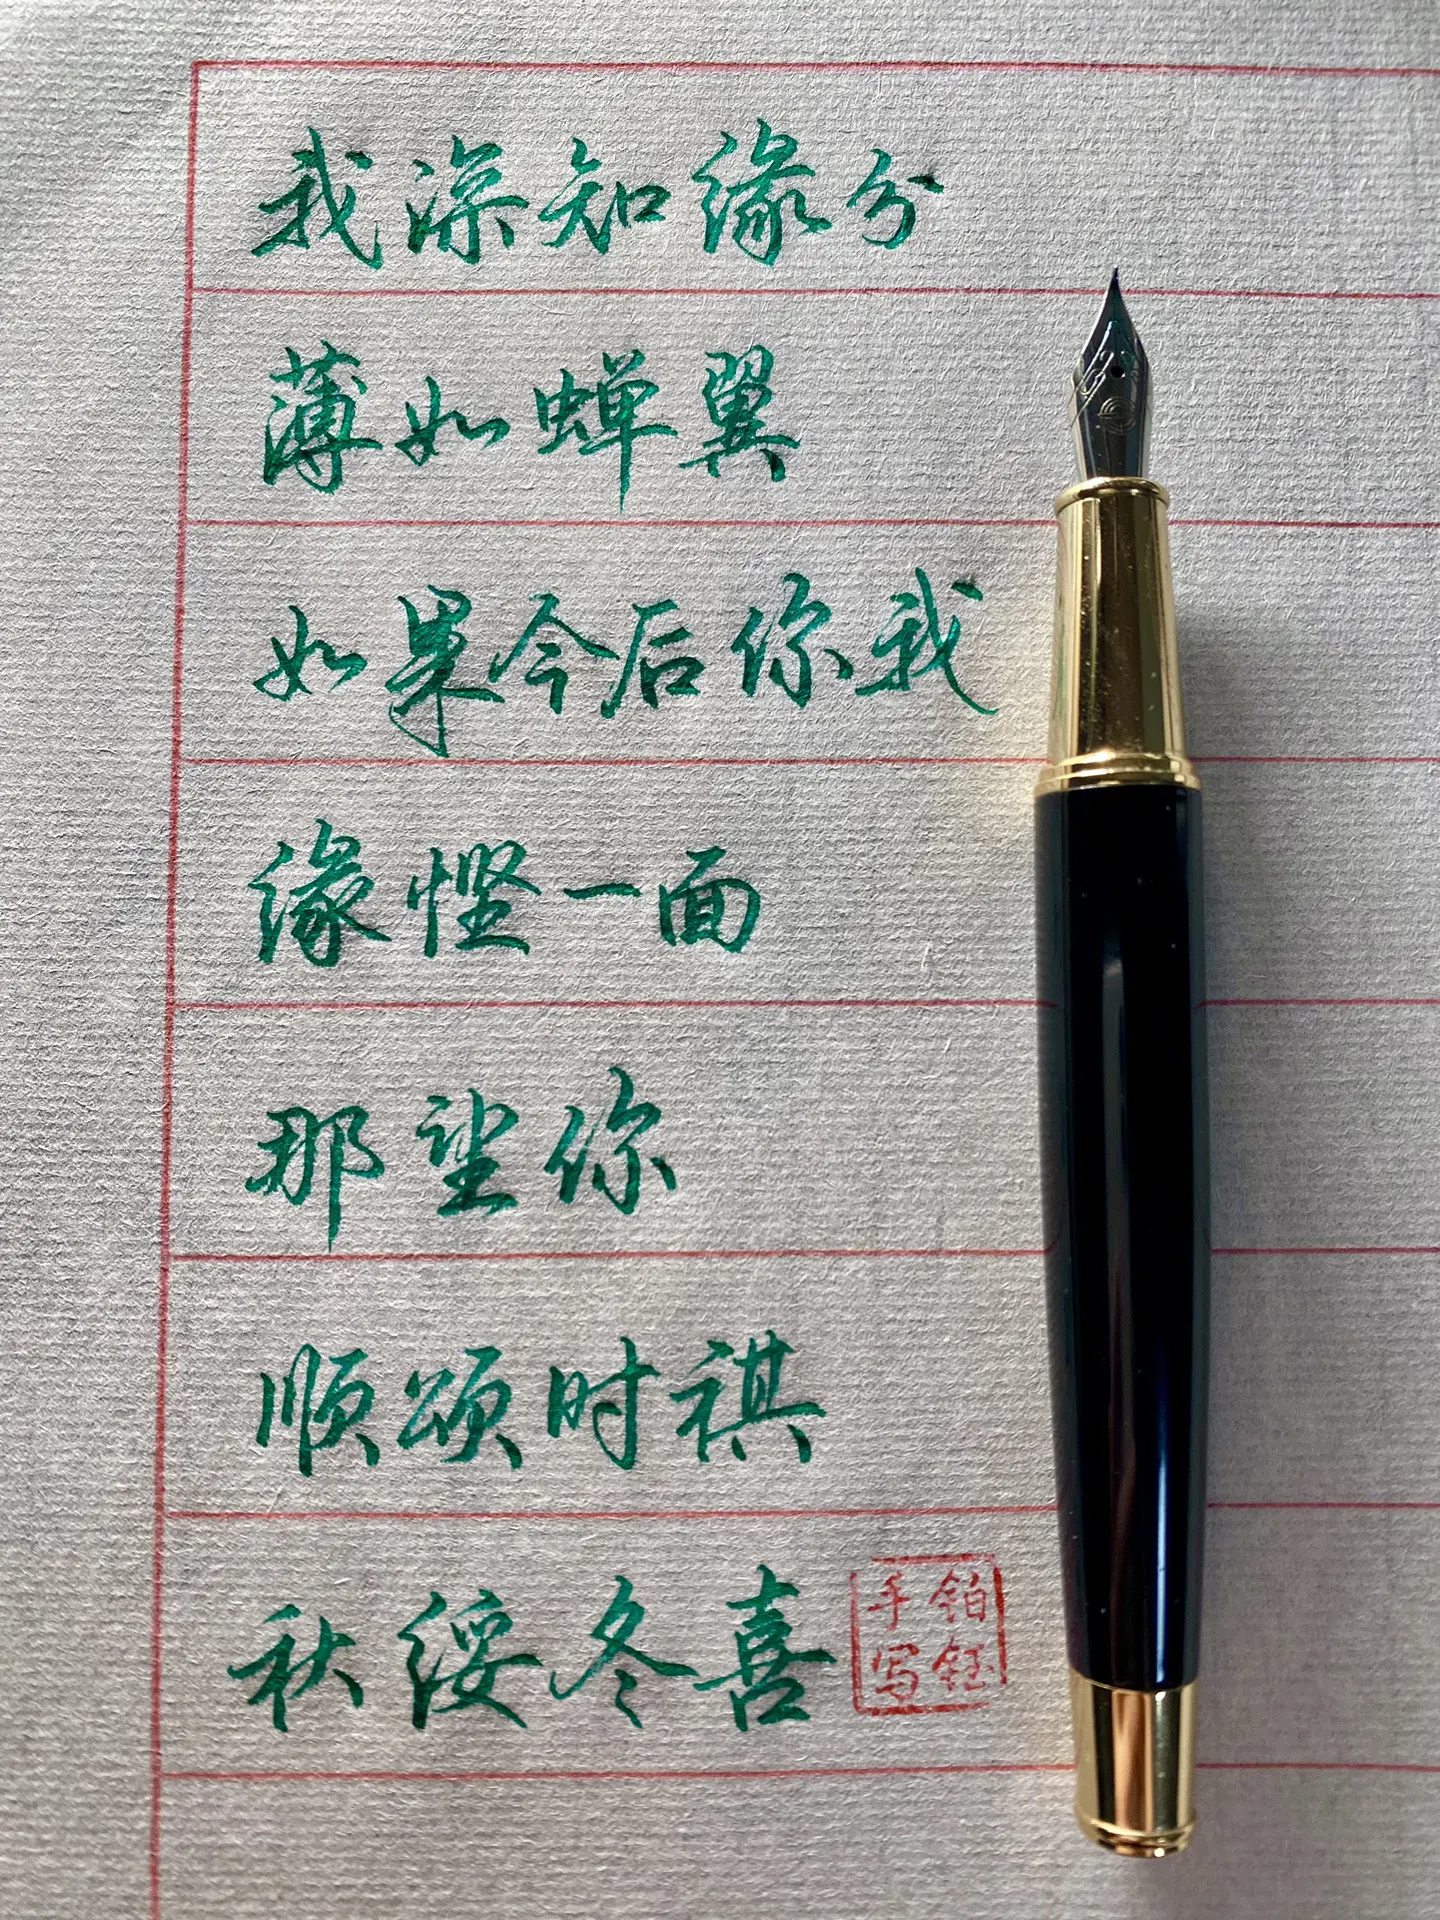 我深知缘分
薄如蝉翼
如果今后你我
缘悭一面
那望你
顺颂时祺
秋绥冬喜
铂钰
手写